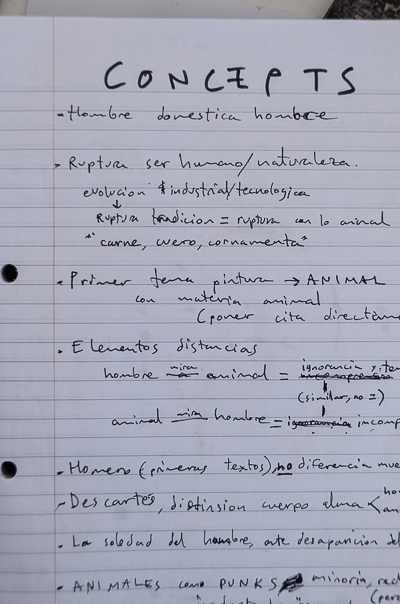 CONCEPTS
- Hombre domestica hombre
> Ruptura ser humano/naturaleza.
evolucion industrial/tecnologica
↓
Ruptura tradicion = ruptura con lo animal
"carne, cuero, cornamenta"
• Primer tema pintura → ANIMAL
con materia animal
(poner cita directam
• Elementos distancias
hombre mira animal = ignorancia y te
(similar, no =)
animal mira hombre = incomp
- Homero (primeros textos), no diferencia mue
- Descartes, distinsion cuerpo alma < ho
an
• La soledad del hombre, ante desaparicion del
• ANIMALES como PUNKS minoria, red
(por